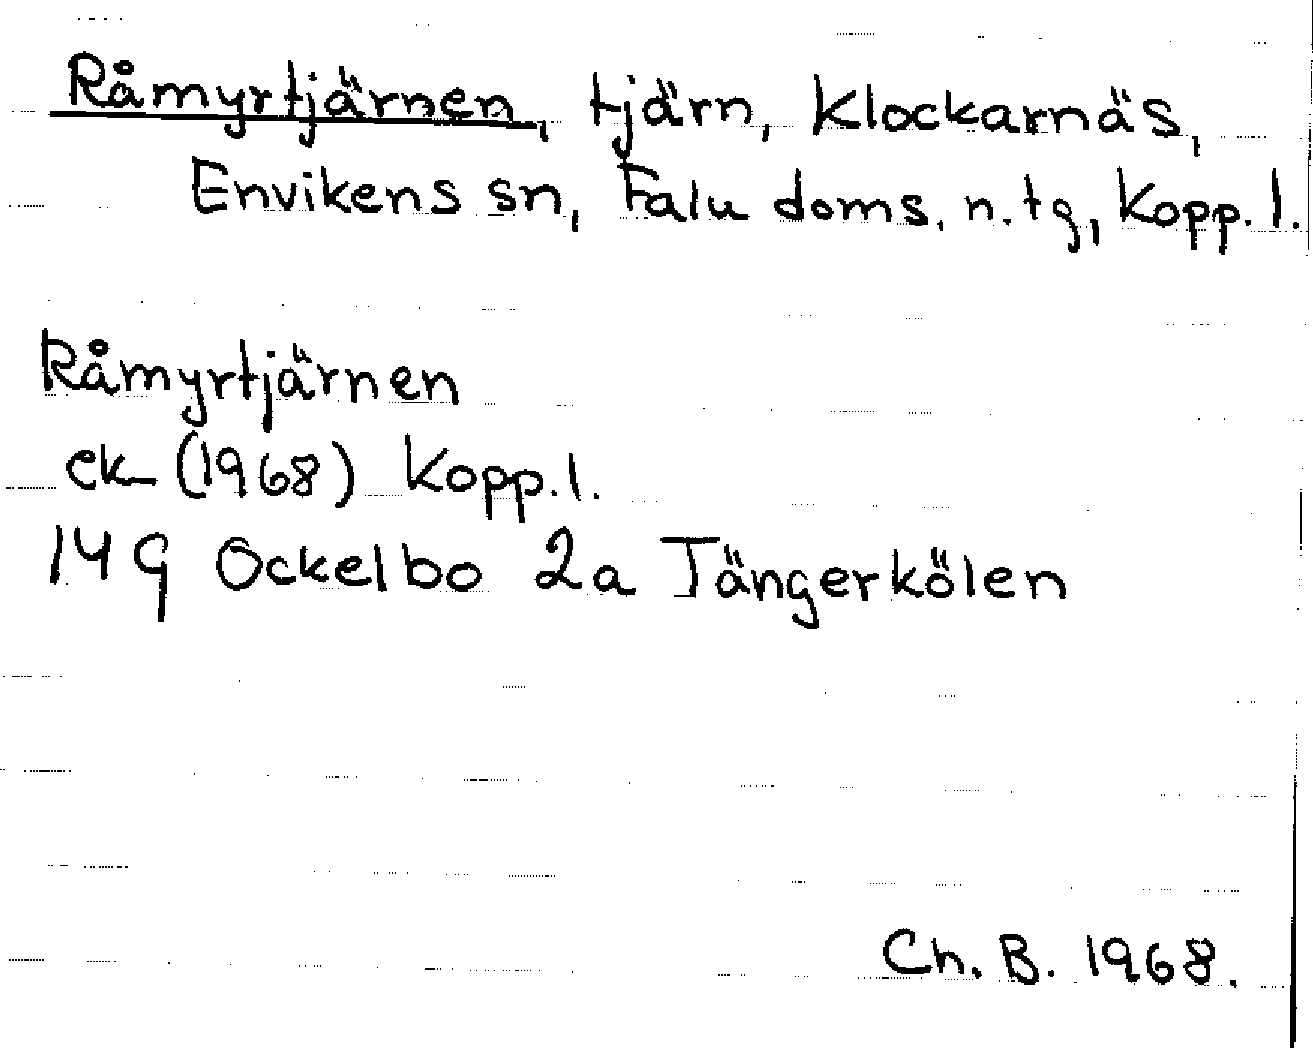 Råmyrtjärnen, tjärn, Klockarnäs,
Envikens sn, Falu doms. n. tg, Kopp. l.
Råmyrtjärnen
ek (1968) Kopp. l.
14 G Ockelbo 2a Tängerkölen
Ch. B. 1968.